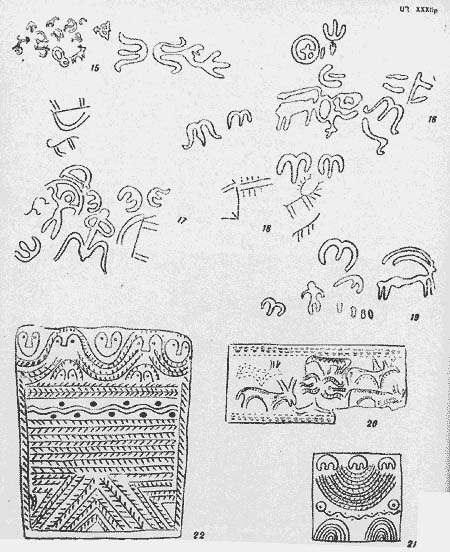 ԱՂ XXXIIբ
15
16
17
18
19
20
22
21